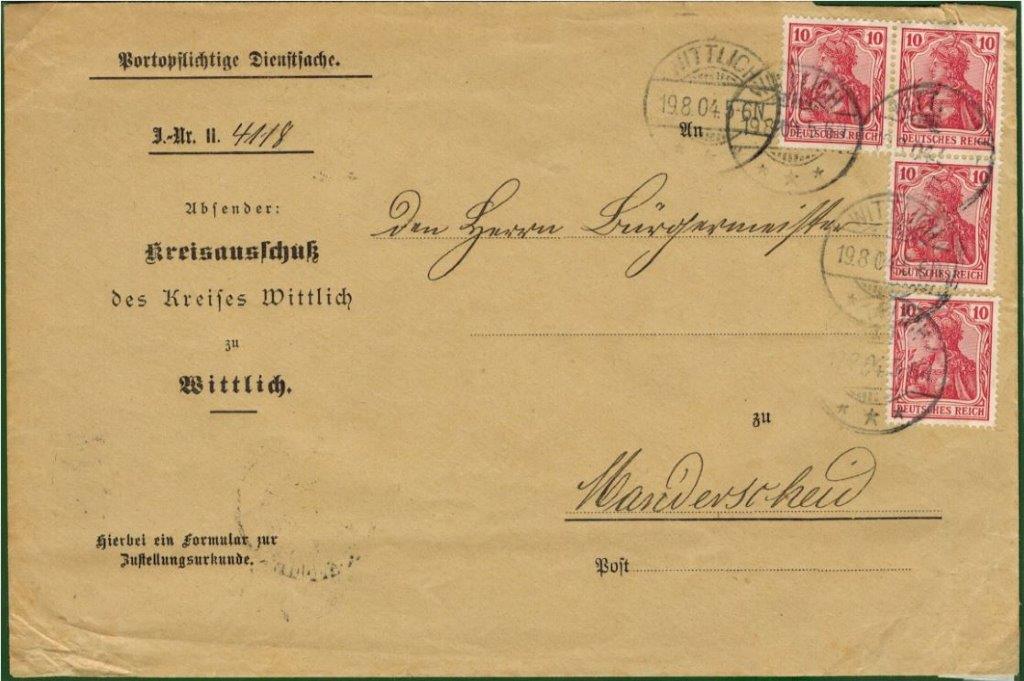 Portopflichtige Dienstsache.
J.-Nr. II. 4118
Absender:
Kreisausschuß
des Kreises Wittlich
zu
Wittlich.
Hierbei ein Formular zur
Zustellungsurkunde.
An
den Herrn Bürgermeister
zu
Manderscheid
Post
10 10
DEUTSCHES REICH
10 10
DEUTSCHES REICH
10
DEUTSCHES REICH
10 10
DEUTSCHES REICH
WITTLICH
19.8.04.5-6N
WITTLICH
19.8.04.5-6N
WITTLICH
19.8.04